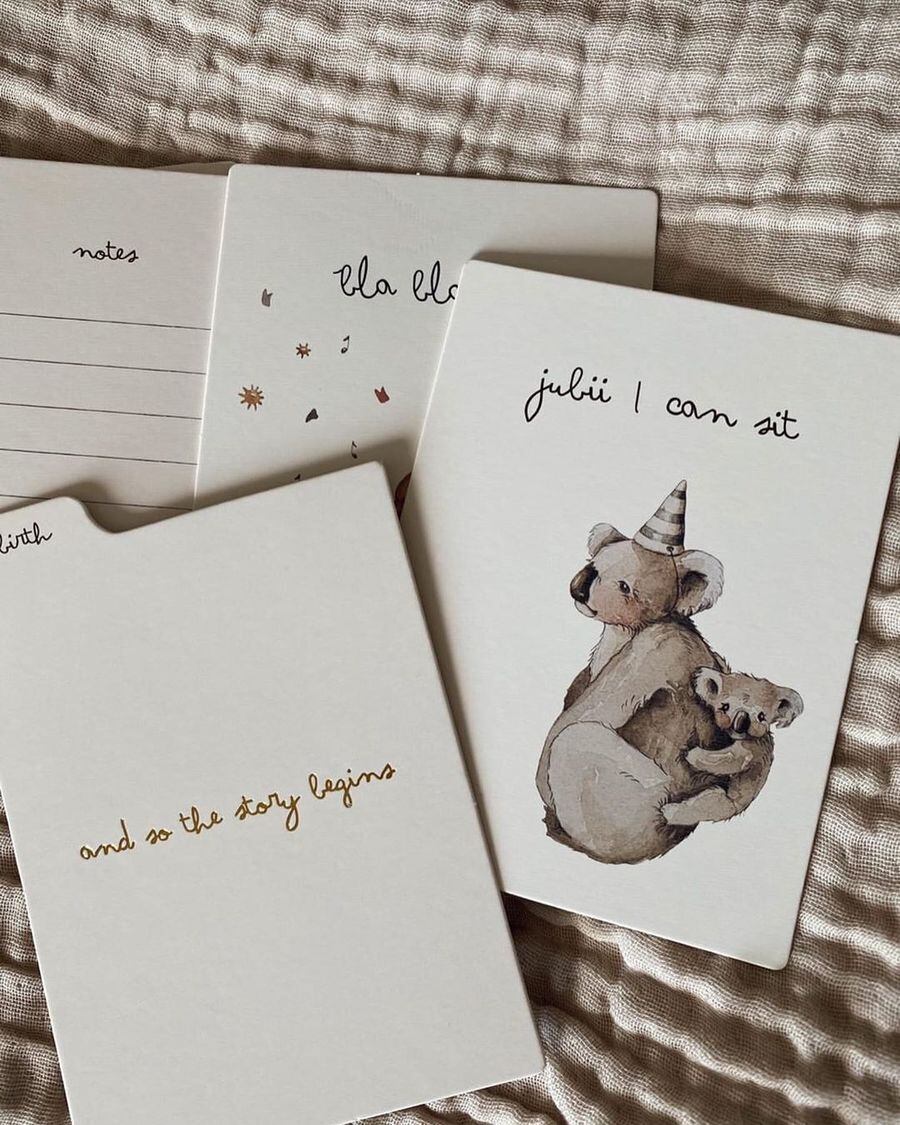 notes
bla
jubii I can sit
birth
and so the story begins